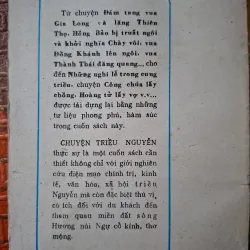 Từ chuyện Đám tang vua
Gia Long và lăng Thiên
Thọ, Hồng Bảo bị truất ngôi
và khởi nghĩa Chày vôi; vua
Đồng Khánh lên ngôi, vua
Thành Thái đăng quang... cho
đến Những nghi lễ trong cung
triều; chuyện Công chúa lấy
chồng, Hoàng tử lấy vợ v.v...
được tái dựng lại bằng những
tư liệu phong phú, hàm súc
trong cuốn sách này.
CHUYỆN TRIỀU NGUYỄN
thực sự là một cuốn sách cần
thiết không chỉ với giới nghiên
cứu diện mạo chính trị, kinh
tế, văn hóa, xã hội triều
Nguyễn mà còn đặc biệt thú vị,
có ích đối với du khách đến
tham quan miền đất sông
Hương núi Ngự cổ kính, thơ
mộng.